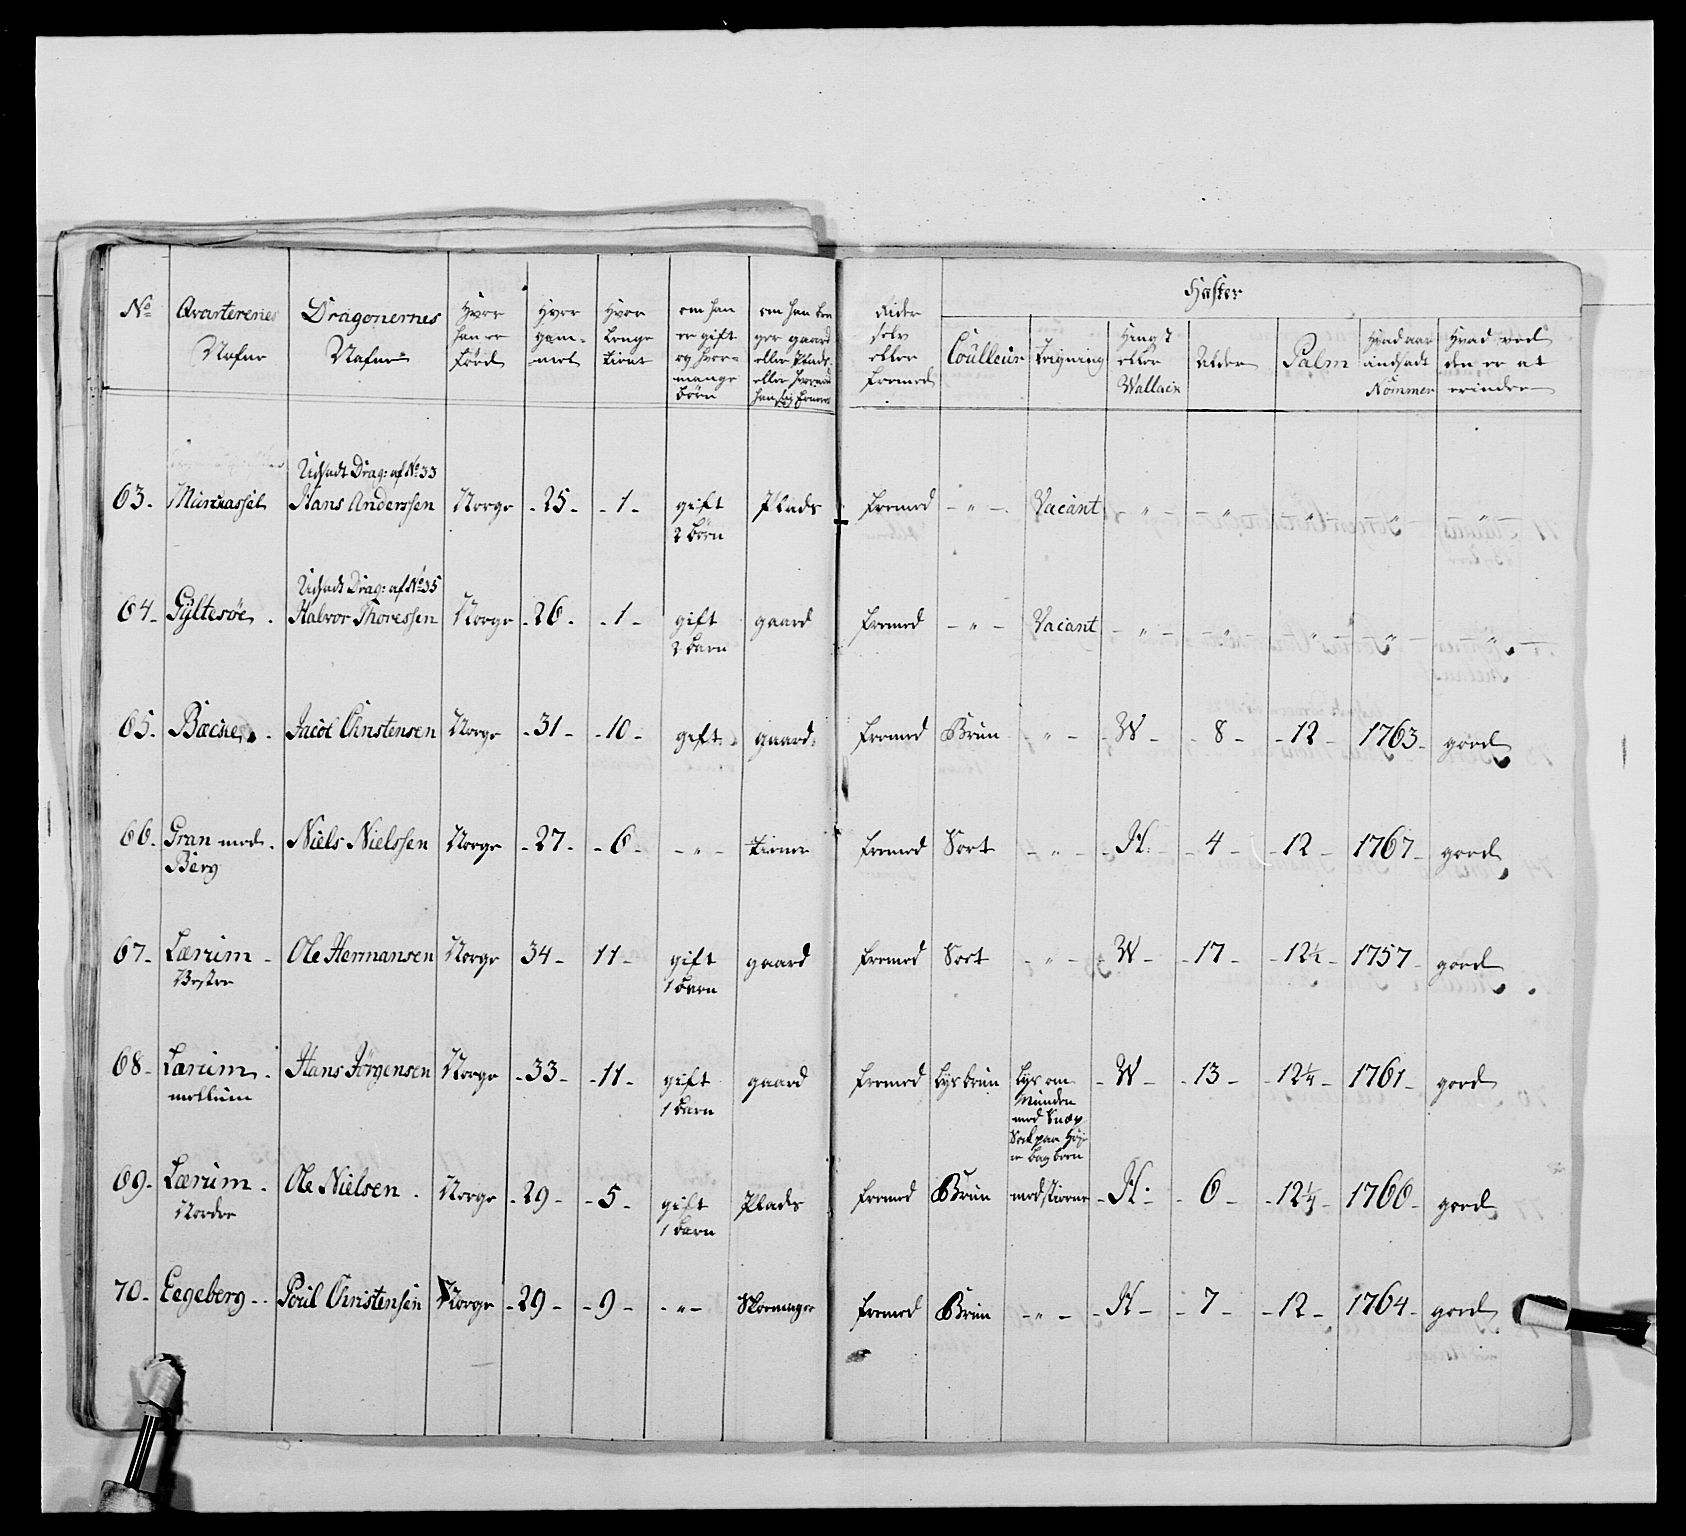 No Qvarterenes Nafne | Dragonernes Nafne | Hvor han er Född | Hvor gam-mel | Hvor Lenge tient | om han er gift og hvor-mange börn | om han bru ger gaard eller Plads eller hvormed han sig Ernerer | Rider selv eller fremed | Hæster
Coulleur | Teigning | Hingst eller Wallack | Alder | Palm | Hvad aar indsadt Nommer | Hvad ved den er at erindre
Udsadt Drag: af No 33
63. | Hans Anderssen | Norge | - 25 - | - 1 - | gift 2 börn | Plads | fremed | - " - | Vacant | - " - | - " - | " | "
Udsadt Drag: af No 35
64. Gyltesöe. | Halvor Thoressen | Norge | - 26 - | - 1 - | gift 2 barn | gaard | fremed | - " - | Vacant | - " - | " | " | "
65. Backe. | Jacob Christensen | Norge | - 31 - | - 10 - | gift. | gaard. | fremed | Brun | - " - | - W - | - 8 - | - 12 - | 1763 - | goed
66. Gran med. Berg | Niels Nielssen | Norge | - 27 - | - 6 - | - " - | tiener | fremed | Sort | - " - | - H: - | - 4 - | - 12 - | 1767 - | goed
67. Lærum - Vestre | Ole Hermansen | Norge | 34 - | 11 - | gift 1 barn | gaard | fremed | Sort | - " - | W - | - 17 - | - 12¼ - | 1757 - | goed
68. Lærum. mellum | Hans Jörgensen | Norge | - 33 - | - 11 - | gift 1 barn | gaard | fremed | Lys brun | Lys om Munden med Snæp Sock paa Höj- re bag been | - W - | - 13 - | 12¼ - | 1761 - | goed
69. Lærum. Nordre | Ole Nielsen. | Norge | - 29 - | - 5 - | gift 1 barn | Plads | fremed | Brun | med stierne | - H: - | - 6 - | - 12¼ - | 1766 - | goed
70. Eegeberg - | Poul Christensen | Norge | - 29 - | - 9 - | - " - | Skoemager | fremed | Brun | - " - | - H - | - 7 - | - 12 - | 1764 - | goed